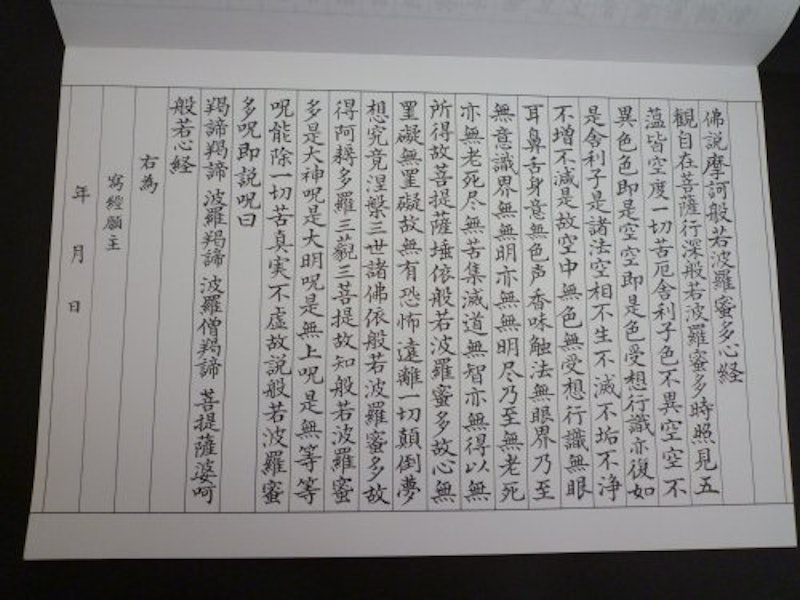 佛説摩訶般若波羅蜜多心経
観自在菩薩行深般若波羅蜜多時照見五
蘊皆空度一切苦厄舎利子色不異空空不
異色色即是空空即是色受想行識亦復如
是舎利子是諸法空相不生不滅不垢不浄
不増不減是故空中無色無受想行識無眼
耳鼻舌身意無色声香味触法無眼界乃至
無意識界無無明亦無無明尽乃至無老死
亦無老死尽無苦集滅道無智亦無得以無
所得故菩提薩埵依般若波羅蜜多故心無
罣礙無罣礙故無有恐怖遠離一切顛倒夢
想究竟涅槃三世諸佛依般若波羅蜜多故
得阿耨多羅三藐三菩提故知般若波羅蜜
多是大神呪是大明呪是無上呪是無等等
呪能除一切苦真実不虚故説般若波羅蜜
多呪即説呪曰
羯諦羯諦 波羅羯諦 波羅僧羯諦 菩提薩婆呵
般若心経
右為
寫經願主
年 月 日